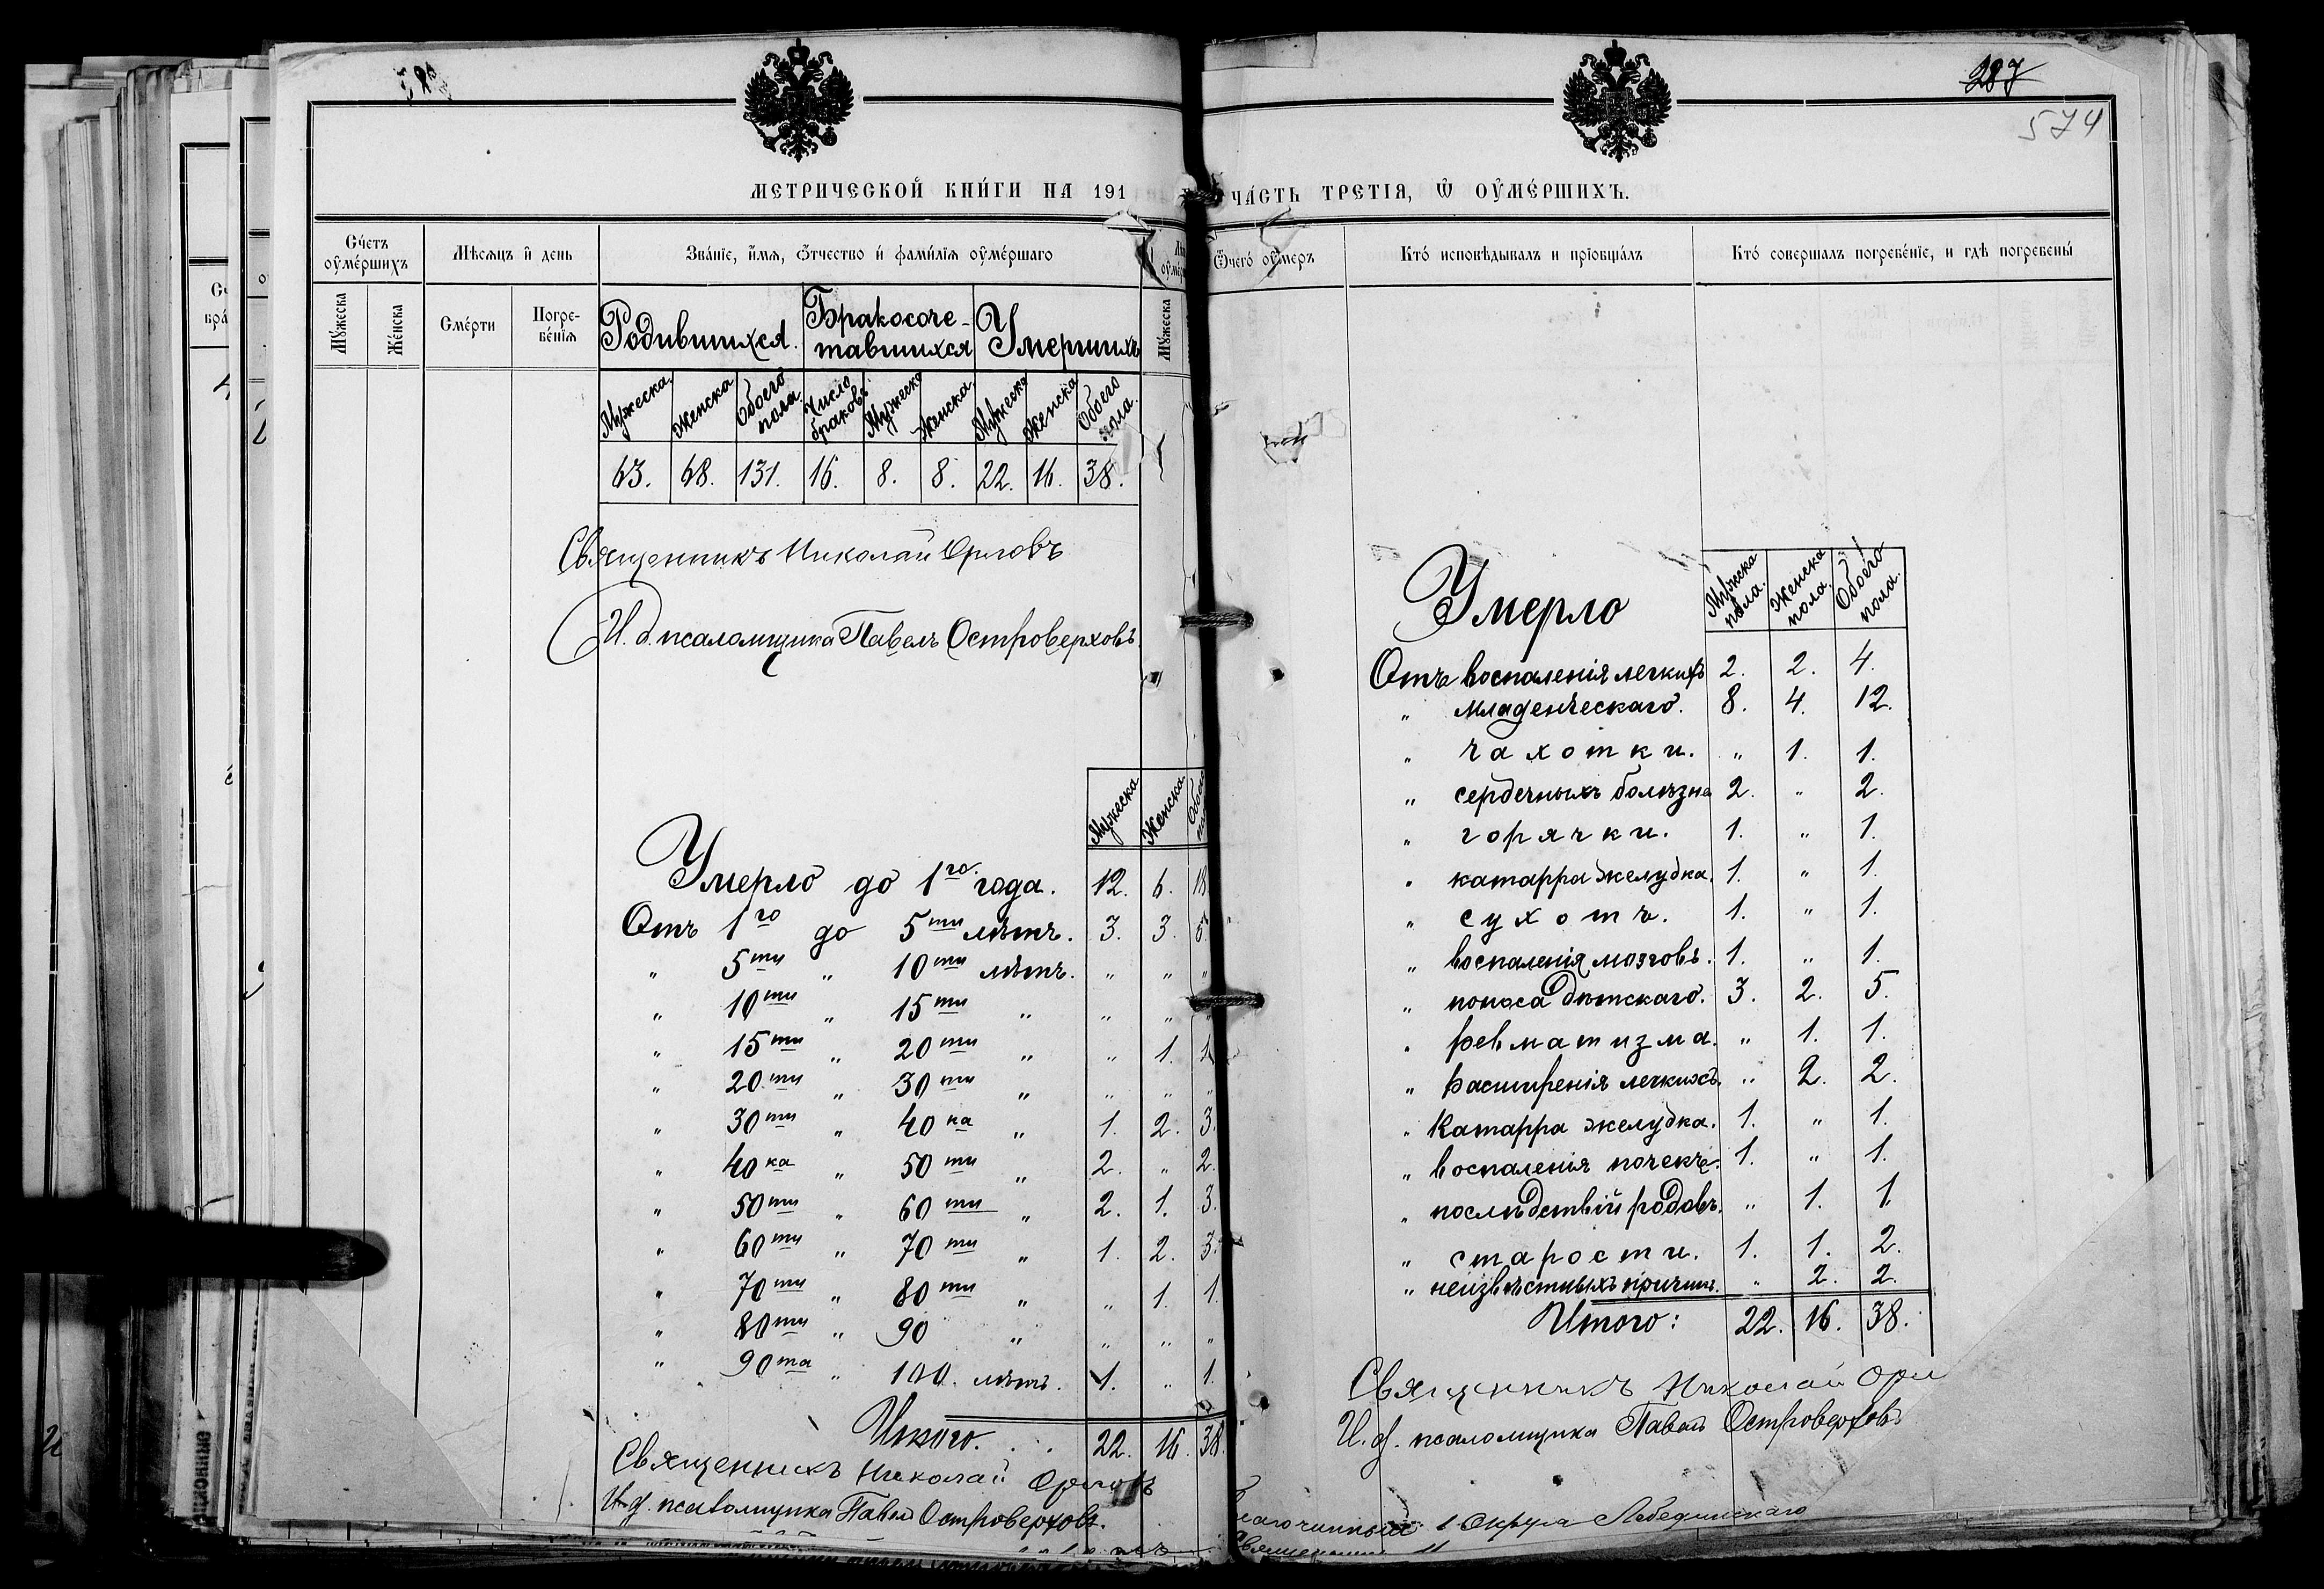 287
574
МЕТРИЧЕСКОЙ КНИ́ГИ НА 191
ЧА́СТЬ ТРЕТІЯ, Ѿ ОУ҆МЕ́РШИХЪ.
Сче́тъ оу҆ме́ршихъ
Мѣсяцъ и҆ день
Зва́ніе, и҆́мя, ѻ҆́тчество и҆ фами́лія оу҆ме́ршаго
Ѿчего̀ оу҆́меръ
Кто́ исповѣ́дывалъ и прїобща́лъ
Кто́ соверша́лъ погребе́ніе, и гдѣ́ погребены́
Му́жеска
Же́нска
Сме́рти
Погре-
бе́нія
Му́жеска
Родившихся.
Бракосоче-
тавшихся
Умершихъ
Мужеска
Женска
Обоего пола.
Число браковъ
Мужеска
Женска.
Мужеска
Женска
Обоего пола.
63. 68. 131. 16. 8. 8. 22. 16. 38.
Священникъ Николай Орловъ
И. д. псаломщика Павелъ Островерховъ.
Мужеска
Женска
Умерло до 1го года. 12. 6. 18.
Отъ 1го до 5ти лѣтъ. 3. 3. 5.
" 5ти " 10ти лѣтъ. " " "
" 10ти " 15ти " " "
" 15ти " 20ти " " 1. 1
" 20ти " 30ти " " " "
" 30ти " 40ка " 1. 2. 3.
" 40ка " 50ти " 2. " 2.
" 50ти " 60ти " 2. 1. 3.
" 60ти " 70ти " 1. 2. 3.
" 70ти " 80ти " " 1. 1.
" 80ти " 90 " " " "
" 90та " 100. лѣтъ. 1. " 1.
Итого. . . 22. 16. 38.
Священникъ Николай Орловъ
И. д. псаломщика Павелъ Островерховъ.
Умерло
Мужска пола.
Женска пола.
Обоего пола.
Отъ воспаленія легкихъ 2. 2. 4.
" младенческаго. 8. 4. 12.
" чахотки. " 1. 1.
" сердечныхъ болѣзне 2. " 2.
" горячки. 1. " 1.
" катарра желудка. 1. " 1.
" сухотъ. 1. " 1.
" воспаленія мозговъ. 1. " 1.
" поноса дѣтскаго. 3. 2. 5.
" ревматизма. " 1. 1.
" расширенія легкихъ. " 2. 2.
" Катарра желудка. 1. " 1.
" воспаленія почекъ. 1. " 1.
" послѣдствій родовъ. " 1. 1
" старости. 1. 1. 2.
" неизвѣстныхъ причинъ. " 2. 2.
Итого: 22. 16. 38.
Священникъ Николай Орл
И. д. псаломщика Павелъ Островерховъ
1 Округа Лебединскаго